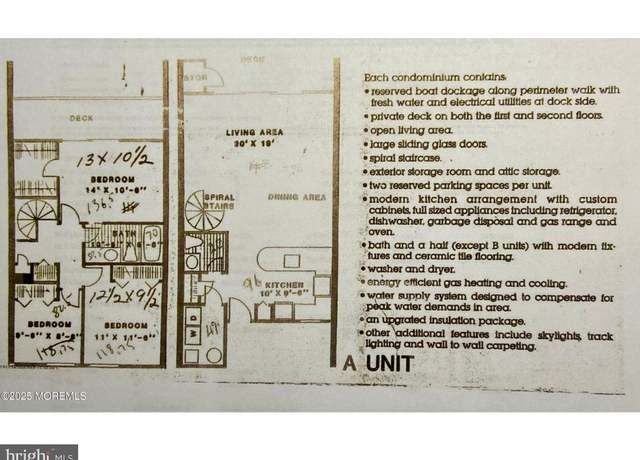 DECK
13 X 10 1/2
BEDROOM
14' X 10'-6"
136.5
BATH
12 1/2 X 9 1/2
BEDROOM
BEDROOM
11' X 11'-6"
118.75
DECK
STOR
LIVING AREA
20' X 19'
DINING AREA
SPIRAL
STAIRS
96
KITCHEN
10' X 9'-6"
W D
Each condominium contains
• reserved boat dockage along perimeter walk with
fresh water and electrical utilities at dock side.
• private deck on both the first and second floors.
• open living area.
• large sliding glass doors.
• spiral staircase.
• exterior storage room and attic storage.
• two reserved parking spaces per unit.
• modern kitchen arrangement with custom
cabinets, full sized appliances including refrigerator,
dishwasher, garbage disposal and gas range and
oven.
• bath and a half (except B units) with modern fix-
tures and ceramic tile flooring.
• washer and dryer.
• energy efficient gas heating and cooling.
• water supply system designed to compensate for
peak water demands in area.
• an upgrated insulation package.
• other additional features include skylights, track
lighting and wall to wall carpeting.
A UNIT
©2025 MOREMLS
bright MLS